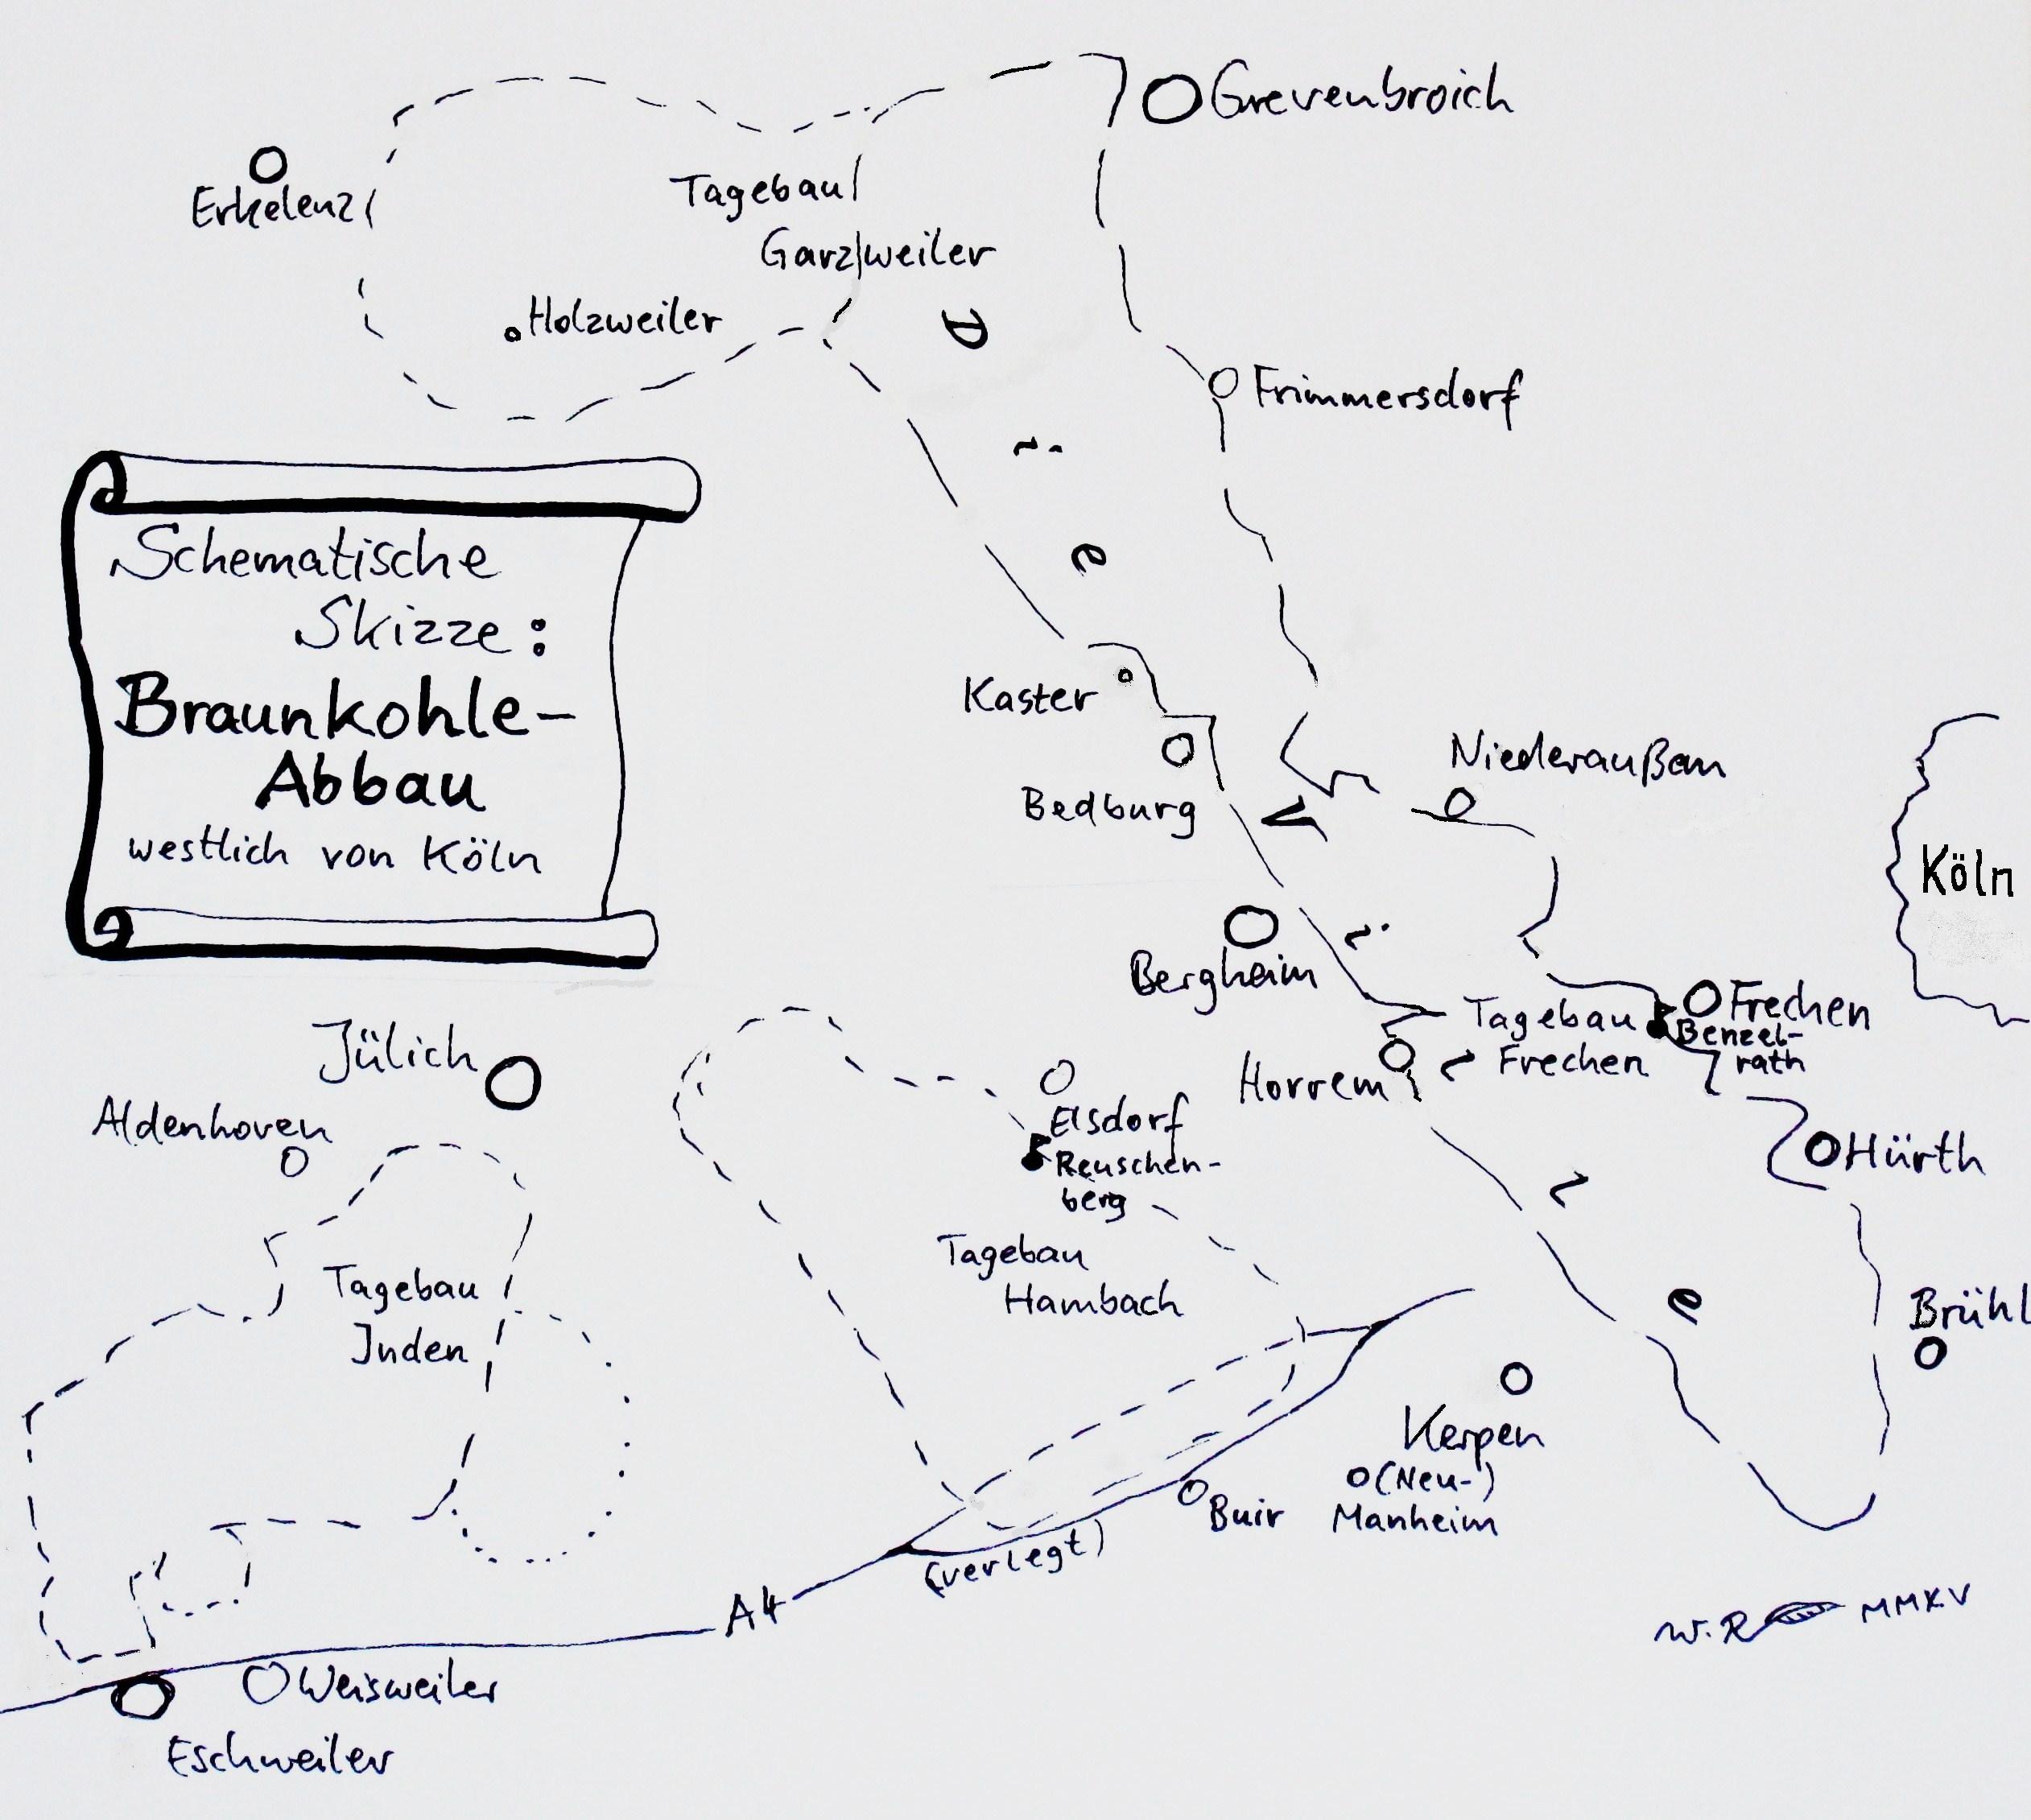 Grevenbroich
Erkelenz
Tagebau
Garzweiler
Holzweiler
Frimmersdorf
Die Ville
Schematische
Skizze:
Braunkohle-
Abbau
westlich von Köln
Kaster
Bedburg
Niederaußem
Köln
Bergheim
Tagebau
Frechen
Frechen
Benzel-
rath
Horrem
Jülich
Aldenhoven
Elsdorf
Reuschen-
berg
Hürth
Tagebau
Hambach
Tagebau
Inden
Brühl
Kerpen
(Neu-)
Manheim
Buir
(verlegt)
A4
Weisweiler
Eschweiler
W.R MMXV